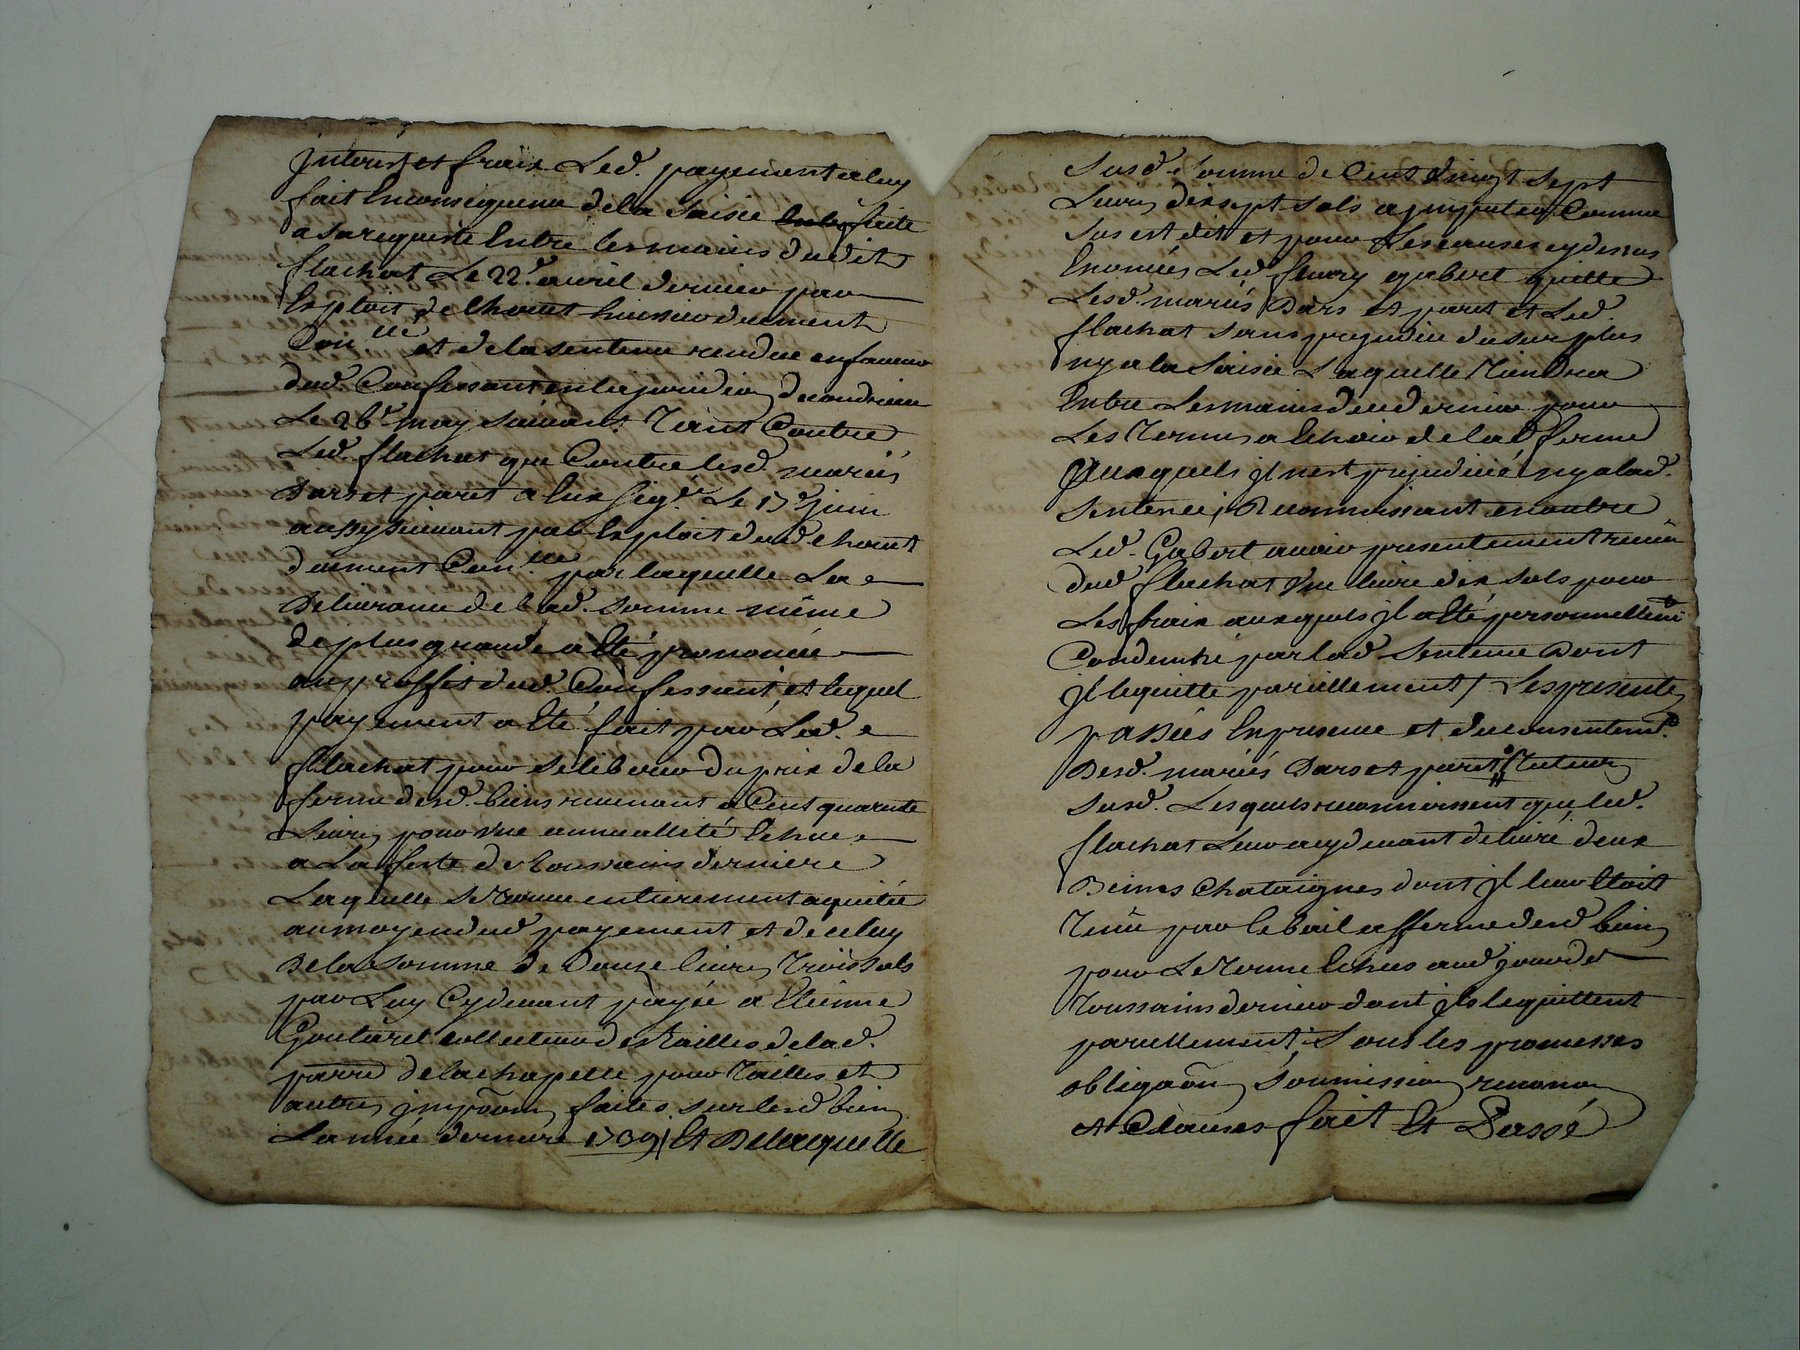 jnterest et fraix Led. payement a luy
fait En consequence de la saisie faite
a sa requeste Entre les mains dudit
flachat Le 22e. avril dernier par
Exploit de Chouet huissier duement
Con.lle et de la sentence rendue en faveur
dud. Confessant en la juridion de condrieu
Le 26e. may suivant Tant Contre
Led. flachat que Contre lesd. mariés
Dars et paret a Eux sig.ée Le 17e juin
aussy suivant par Exploit dud. chouet
duement Con.lle par laquelle La
Delivrance de lad. somme même
de plus grande a Eté prononcée
au proffit dud. Confessant et lequel
payement a Eté fait par Led.
flachat pour se liberer du prix de la
ferme desd. biens revenant a Cent quarante
Livres pour une annuallité Echue
a La feste de Toussains derniere
Laquelle se Trouve entierement aquitée
au moyen dud. payement et de celuy
De la somme de Douze livres Trois sols
par Luy Cydevant payée a Etienne
Gouteret collecteur des Tailles de lad.
parre de la chapelle pour Tailles et
autres jmpõõns faites sur lesd. biens
L'année derniere 1739 / Et De laquelle
Susd. Somme de Cent vingt sept
Livres dix sept sols a jmputer Comme
sus est dit et pour Les causes cy dessus
Enoncées Led. fleury gabert quitte
Lesd. mariés Dars et paret et Led.
flachat sans prejudice du surplus
ny a la Saisie Laquelle Tiendra
Entre Les mains dud. dernier pour
Les Termes a Echoir de lad. ferme
Auxquels jl n'est prejudicié ny a lad.
Sentence ; Reconnoissant en outre
Led. Gabert avoir presentement receu
dud. flachat Une livre dix sols pour
Les fraix auxquels jl a Eté personnellemt
Condemné par lad. Sentence Dont
jl le quitte pareillement / Les presentes
passées En presence et du consentemt.
Desd. mariés Dars et paret Tuteur
susd. Lesquels reconnoissent que led.
flachat Leur a cy devant delivré deux
Bennes Chataignes dont jl leur Etoit
Tenu par le bail a fferme desd. biens
pour Le Terme Echus aud. jour de
Toussains dernier dont jls le quittent
pareillement ; Sous les promesses
obligaõn, soumission, renonon
et Clauses fait Et Passé